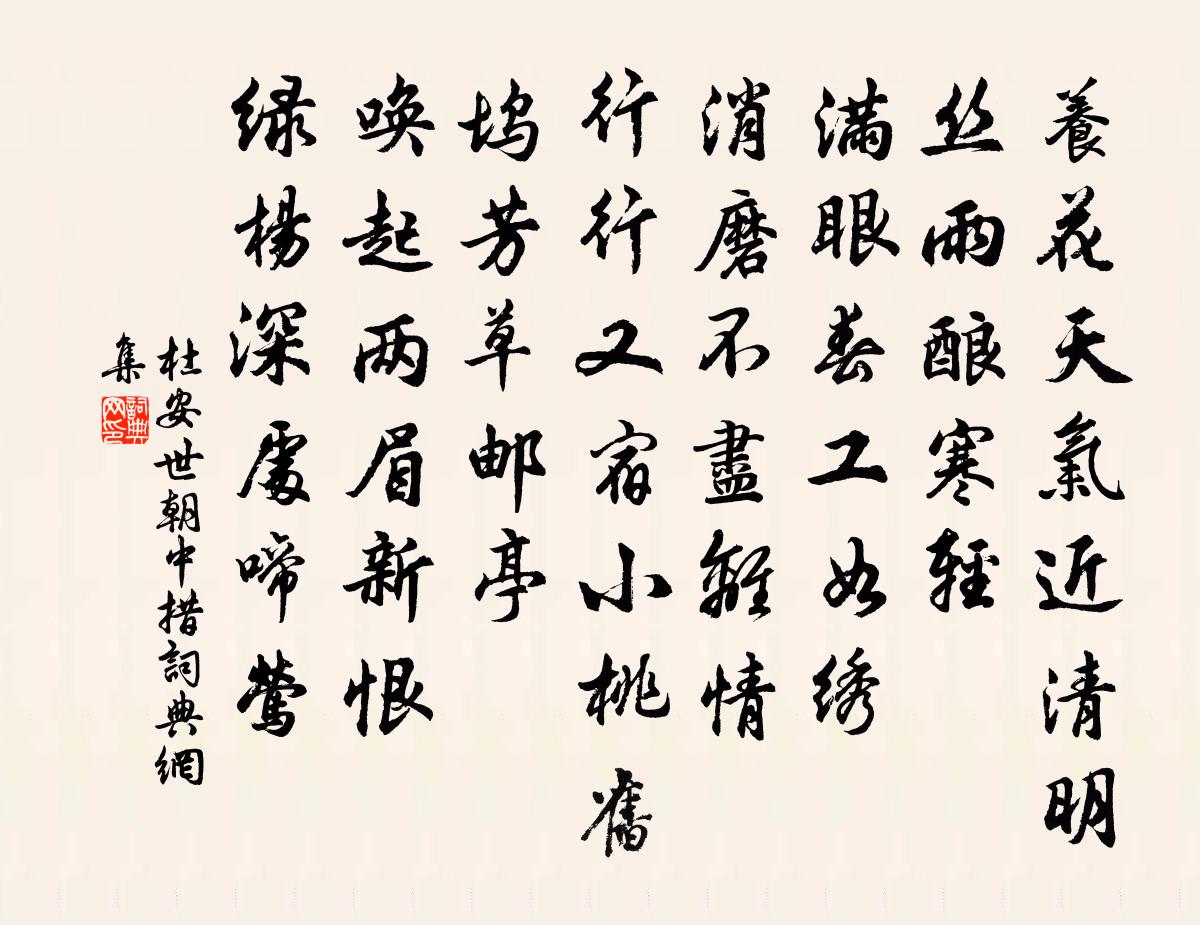 養花天氣近清明
丝雨酿寒輕
满眼春工如绣
消磨不盡離情
行行又宿小桃舊
坞芳草邮亭
唤起两眉新恨
绿楊深處啼鶯
杜安世朝中措詞典網
集
詞典网印